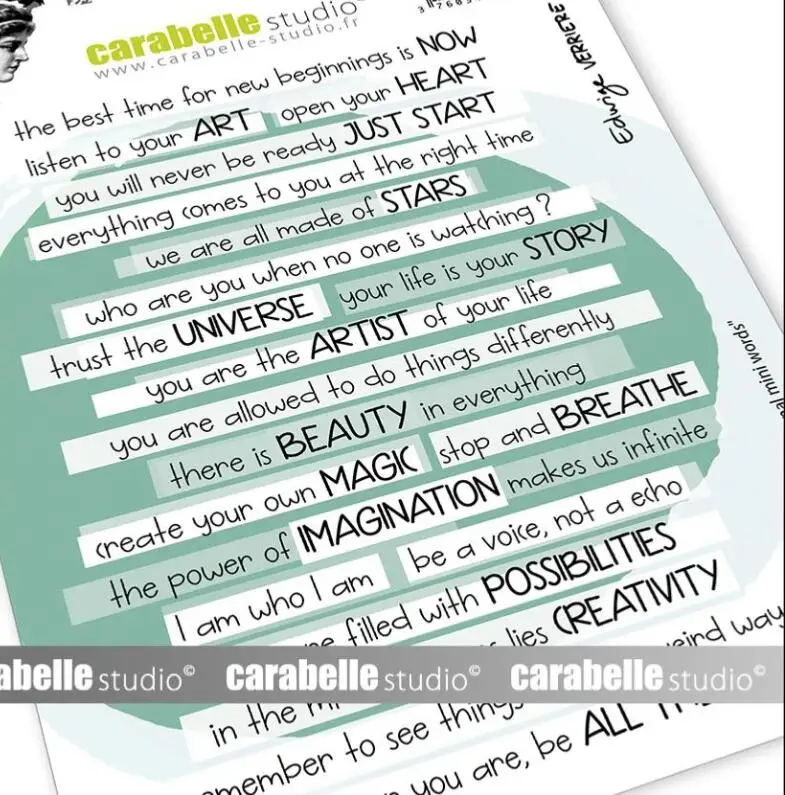 carabelle studio
www.carabelle-studio.fr
Edwige VERRIERE
the best time for new beginnings is NOW
listen to your ART
open your HEART
you will never be ready JUST START
everything comes to you at the right time
we are all made of STARS
who are you when no one is watching?
your life is your STORY
trust the UNIVERSE
you are the ARTIST of your life
you are allowed to do things differently
there is BEAUTY in everything
stop and BREATHE
create your own MAGIC
the power of IMAGINATION makes us infinite
be a voice, not a echo
I am who I am
filled with POSSIBILITIES
lies CREATIVITY
mini words"
abelle studio©
carabelle studio©
carabelle studio©
way
in the
to see
you are, be ALL